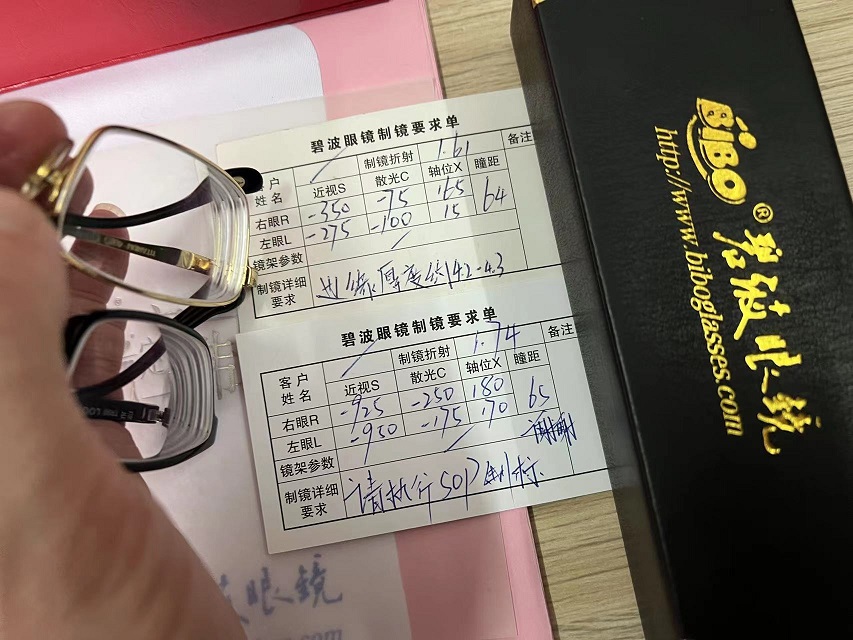 碧波眼镜制镜要求单
客户姓名 / 制镜折射 1.61 备注
近视S 散光C 轴位X 瞳距
右眼R -350 -75 165 64
左眼L -275 -100 15
镜架参数 /
制镜详细要求 边缘厚度约4.2-4.3
碧波眼镜制镜要求单
客户姓名 / 制镜折射 1.74 备注
近视S 散光C 轴位X 瞳距
右眼R -925 -250 180 65
左眼L -950 -175 170
镜架参数 / 谢谢
制镜详细要求 请执行SOP制标
眼镜
BiBO® 碧波眼镜
http://www.biboglasses.com